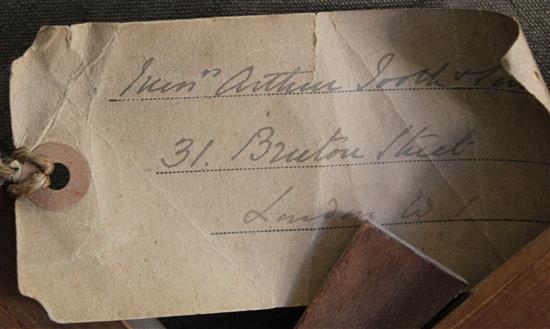 Messrs Arthur Tooth & Sons
31. Bruton Street
London W.1